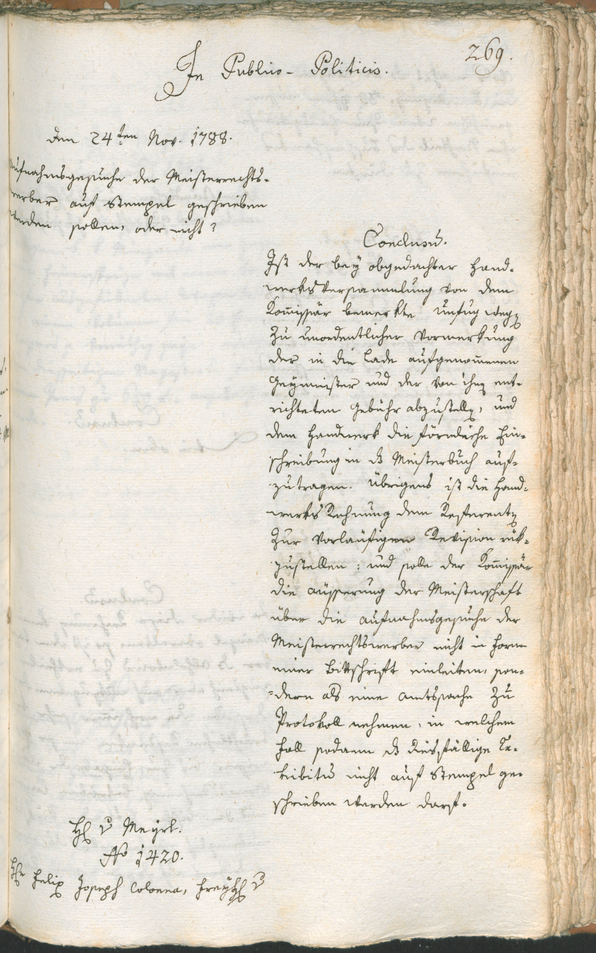 269.
In Publico-Politicis.
den 24ten Nov. 1788.
Aufnahmsgesuche der Meisterrechts-
werber auf Stempel geschrieben
werden sollen, oder nicht?
Conclusum.
Ist der bey obgedachter Hand-
werksversammlung von dem
Kommissär bemerkte Unfug wegen
zu unordentlicher Vormerkung
der in die Lade aufgenommenen
Geymeister und der von ihnen ent-
richteten Gebühr abzustellen, und
dem Handwerk die förmliche Ein-
schreibung in das Meisterbuch auf-
zutragen. Übrigens ist die Hand-
werks Rechnung dem Referenten
zur vorläufigen Revision rük-
zustellen; und solle der Kommissär
die äusserung der Meisterschaft
über die Aufnahmsgesuche der
Meisterrechtswerber nicht in Form
einer Bittschrift einleiten, son-
dern als eine Amtssache zu
Protokoll nehmen, in welchem
Fall sodann das diesfällige Ex-
hibitum nicht auf Stempel ge-
schrieben werden darf.
H v Meyrl.
No 1420.
Hr Felix Joseph Colonna, Freyh v